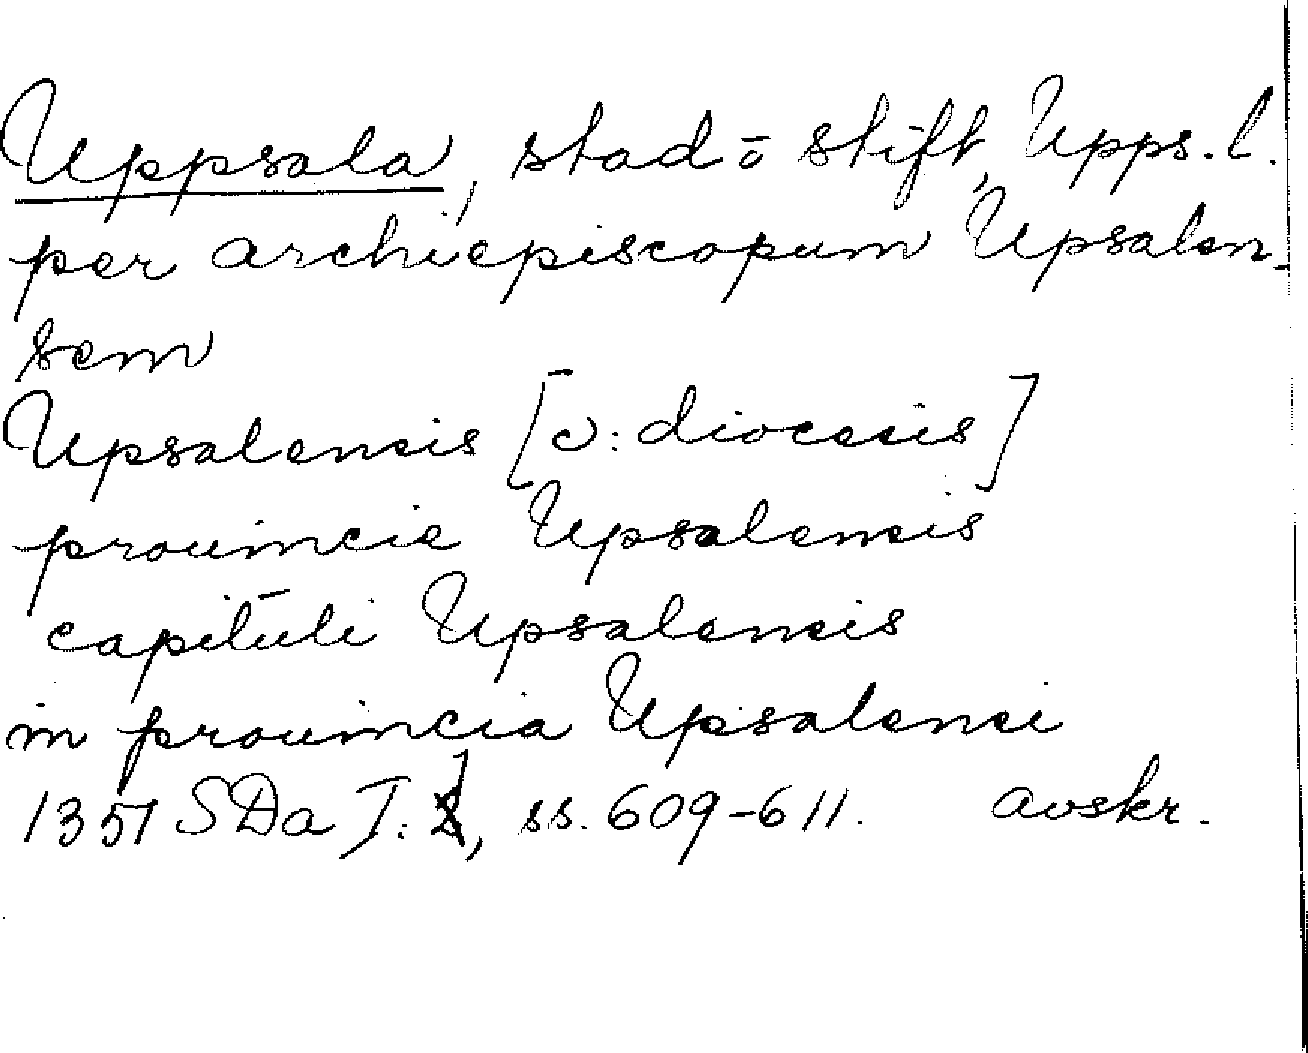 Uppsala, stad o stift, Upps. l.
per archiepiscopum Upsalen-
sem
Upsalensis [ɔ: diocesis]
prouincie Upsalensis
capituli Upsalensis
in prouincia Upsalensi
1351 SDa I: 1, ss. 609-611. avskr.